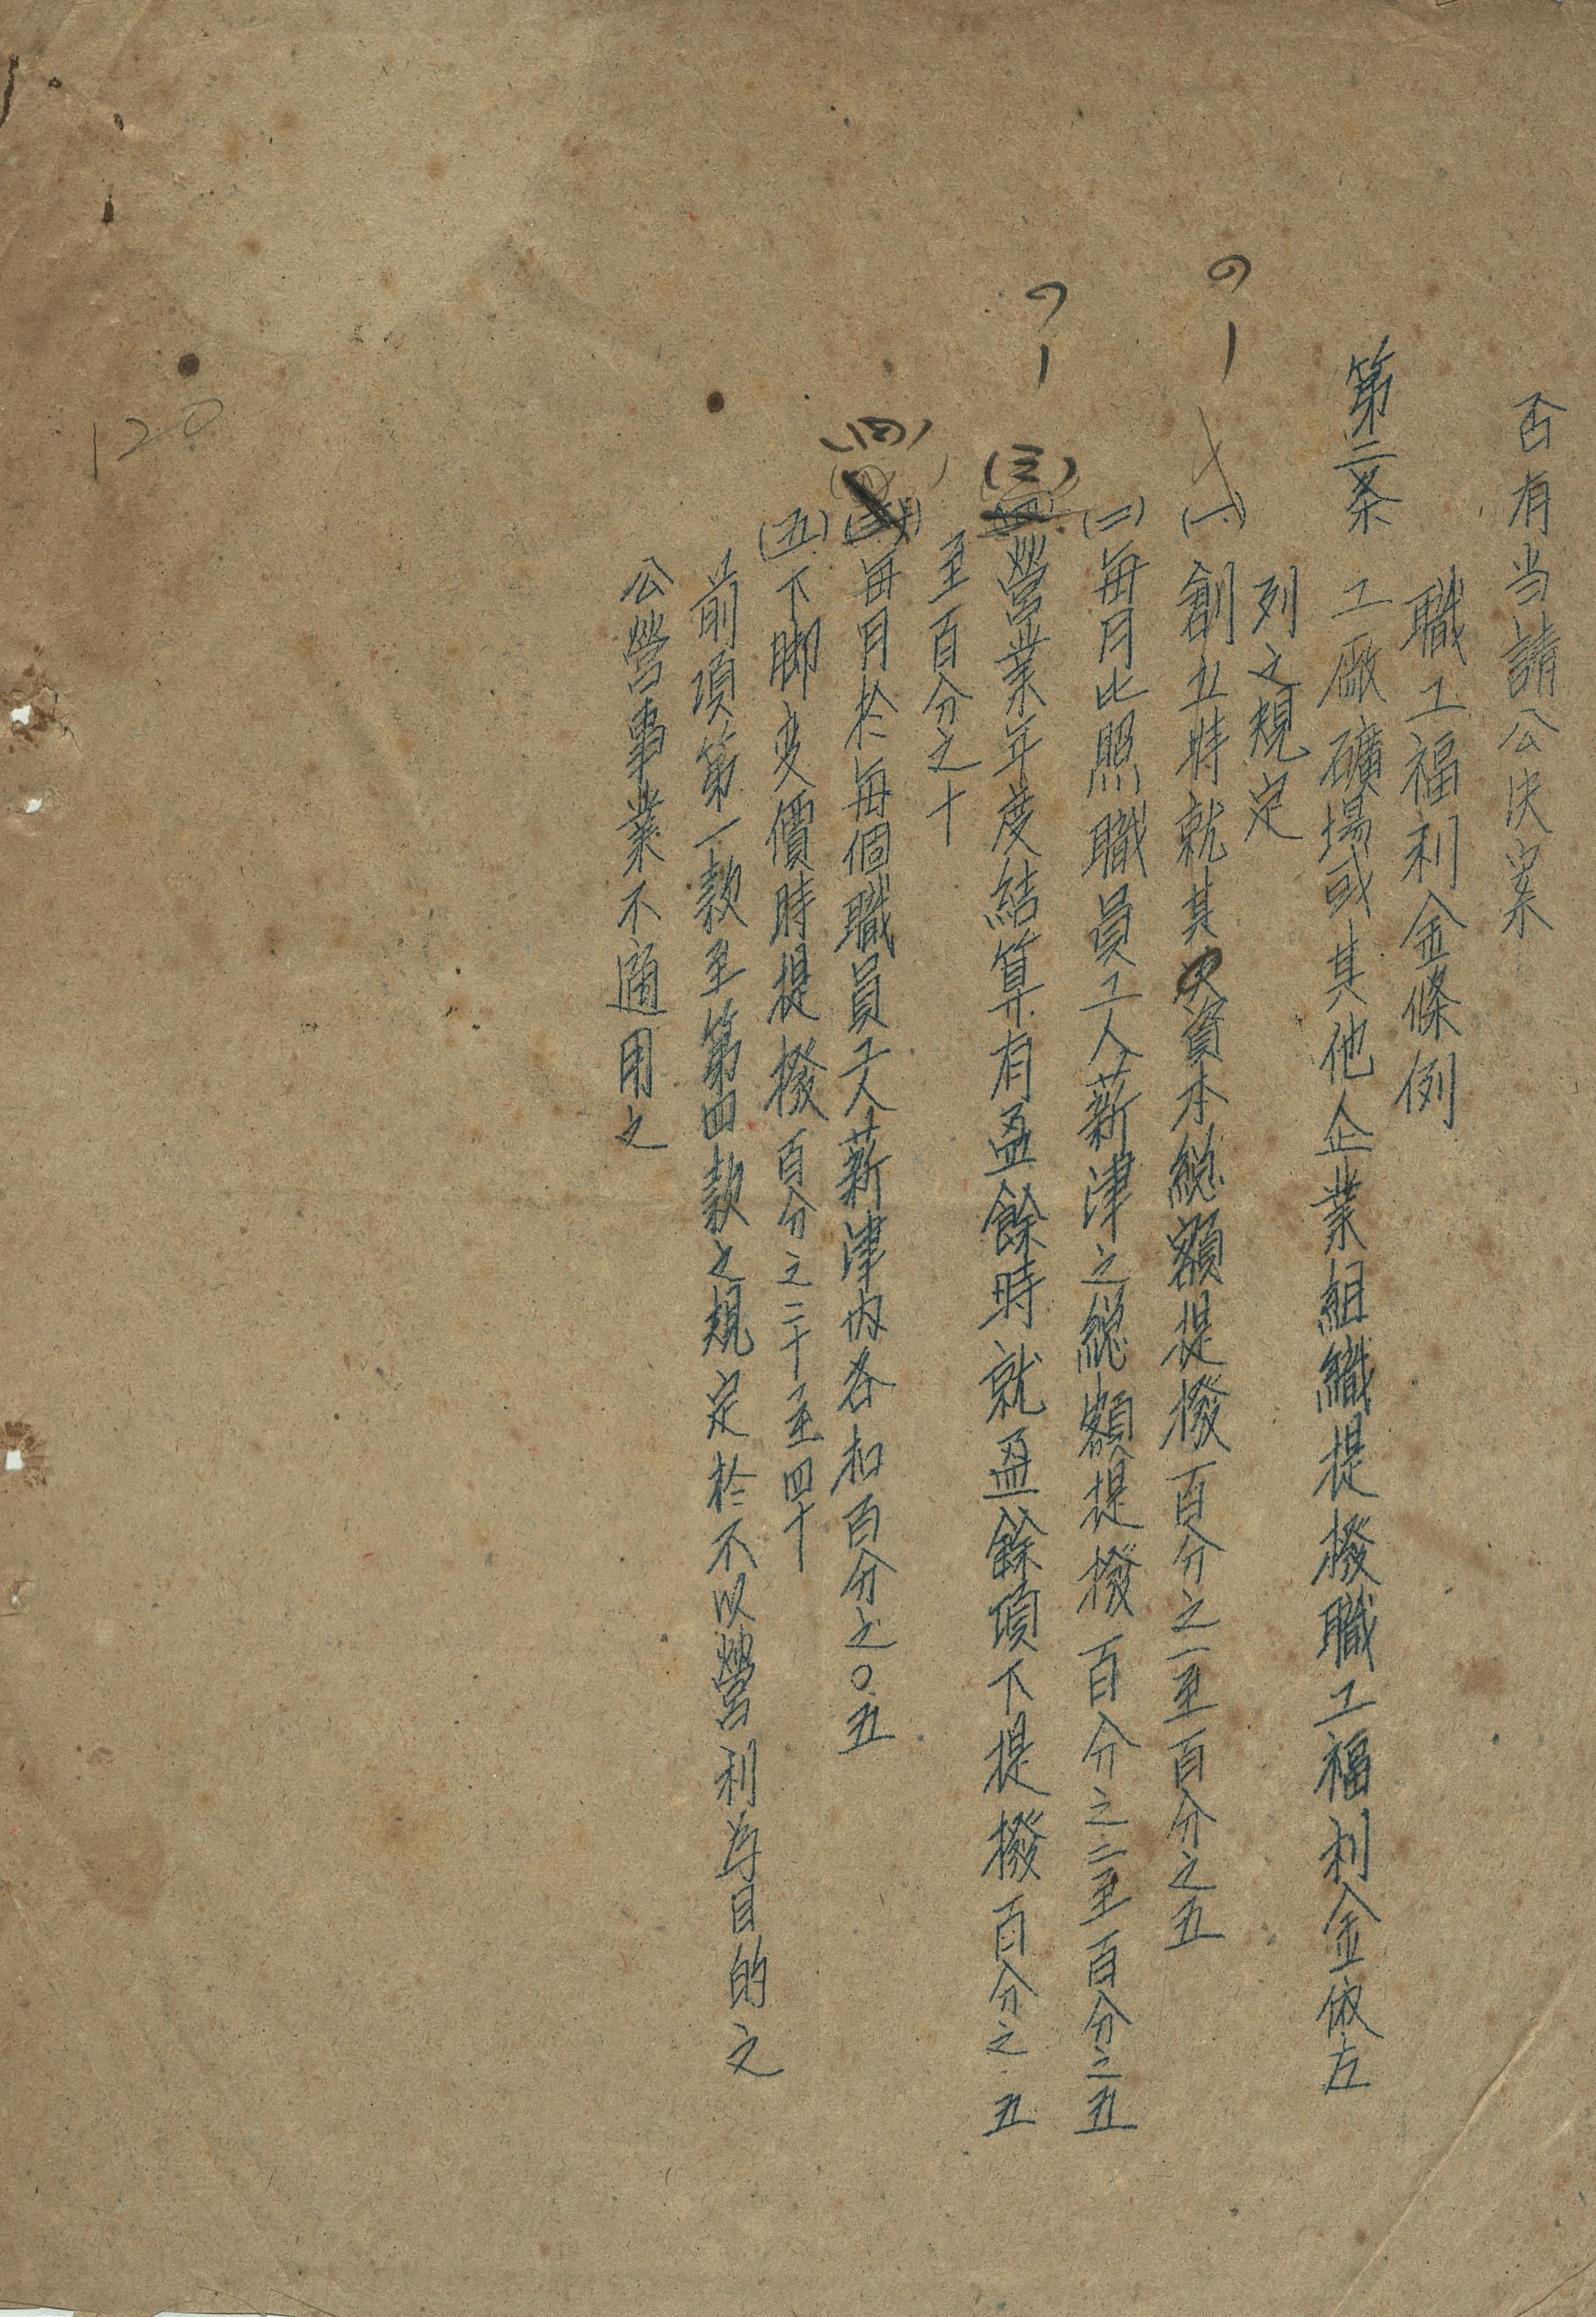 否有当請公决案
職工福利金條例
第二条 工廠礦場或其他企業組織提撥職工福利金依左
列之規定
(一)創立時就其資本総額提撥百分之一至百分之五
(二)每月比照職員工人薪津之総額提撥百分之二至百分之五
(三)營業年度結算有盈餘時就盈餘項下提撥百分之五
至百分之十
(四)每月於每個職員工人薪津内各扣百分之〇.五
(五)下脚变價時提撥百分之二十至四十
前項第一款至第四款之規定於不以營利為目的之
公營事業不適用之
120